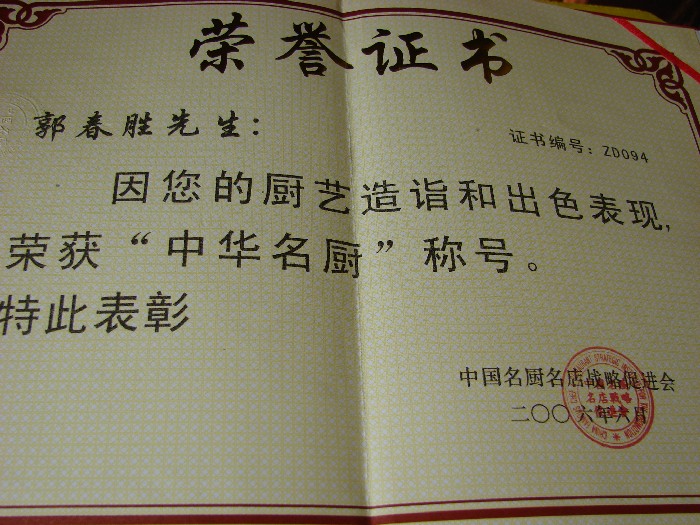 荣誉证书
郭春胜先生：
证书编号：ZD094
因您的厨艺造诣和出色表现，
荣获“中华名厨”称号。
特此表彰
中国名厨名店战略促进会
二〇〇六年六月
名店战略